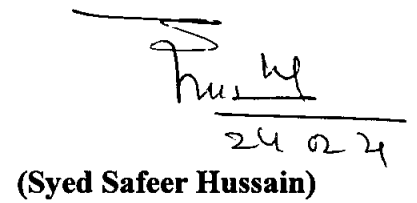 24 02 24
(Syed Safeer Hussain)